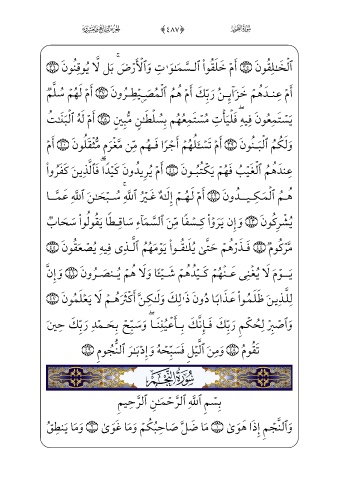 سورة الطور ﴿٤٨٧﴾ الجزء السابع والعشرون
ٱلْخَـٰلِقُونَ ۝ أَمْ خَلَقُوا۟ ٱلسَّمَـٰوَٰتِ وَٱلْأَرْضَ ۚ بَل لَّا يُوقِنُونَ ۝
أَمْ عِندَهُمْ خَزَآئِنُ رَبِّكَ أَمْ هُمُ ٱلْمُصَۣيْطِرُونَ ۝ أَمْ لَهُمْ سُلَّمٌ
يَسْتَمِعُونَ فِيهِ ۖ فَلْيَأْتِ مُسْتَمِعُهُم بِسُلْطَـٰنٍ مُّبِينٍ ۝ أَمْ لَهُ ٱلْبَنَـٰتُ
وَلَكُمُ ٱلْبَنُونَ ۝ أَمْ تَسْـَٔلُهُمْ أَجْرًا فَهُم مِّن مَّغْرَمٍ مُّثْقَلُونَ ۝ أَمْ
عِندَهُمُ ٱلْغَيْبُ فَهُمْ يَكْتُبُونَ ۝ أَمْ يُرِيدُونَ كَيْدًا ۖ فَٱلَّذِينَ كَفَرُوا۟
هُمُ ٱلْمَكِيدُونَ ۝ أَمْ لَهُمْ إِلَـٰهٌ غَيْرُ ٱللَّهِ ۚ سُبْحَـٰنَ ٱللَّهِ عَمَّا
يُشْرِكُونَ ۝ وَإِن يَرَوْا۟ كِسْفًا مِّنَ ٱلسَّمَآءِ سَاقِطًا يَقُولُوا۟ سَحَابٌ
مَّرْكُومٌ ۝ فَذَرْهُمْ حَتَّىٰ يُلَـٰقُوا۟ يَوْمَهُمُ ٱلَّذِى فِيهِ يُصْعَقُونَ ۝
يَوْمَ لَا يُغْنِى عَنْهُمْ كَيْدُهُمْ شَيْـًٔا وَلَا هُمْ يُنصَرُونَ ۝ وَإِنَّ
لِلَّذِينَ ظَلَمُوا۟ عَذَابًا دُونَ ذَٰلِكَ وَلَـٰكِنَّ أَكْثَرَهُمْ لَا يَعْلَمُونَ ۝
وَٱصْبِرْ لِحُكْمِ رَبِّكَ فَإِنَّكَ بِأَعْيُنِنَا ۖ وَسَبِّحْ بِحَمْدِ رَبِّكَ حِينَ
تَقُومُ ۝ وَمِنَ ٱلَّيْلِ فَسَبِّحْهُ وَإِدْبَـٰرَ ٱلنُّجُومِ ۝
سورة النجم
بِسْمِ ٱللَّهِ ٱلرَّحْمَـٰنِ ٱلرَّحِيمِ
وَٱلنَّجْمِ إِذَا هَوَىٰ ۝ مَا ضَلَّ صَاحِبُكُمْ وَمَا غَوَىٰ ۝ وَمَا يَنطِقُ